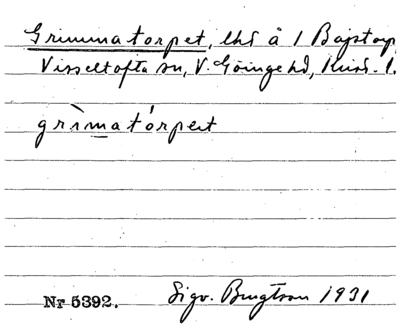 Grimmatorpet, lhd å 1 Bajstorp
Visseltofta sn, V. Göinge hd, Krist. l.
grìmatórpet
Nr 5392. Sigv. Bengtson 1931